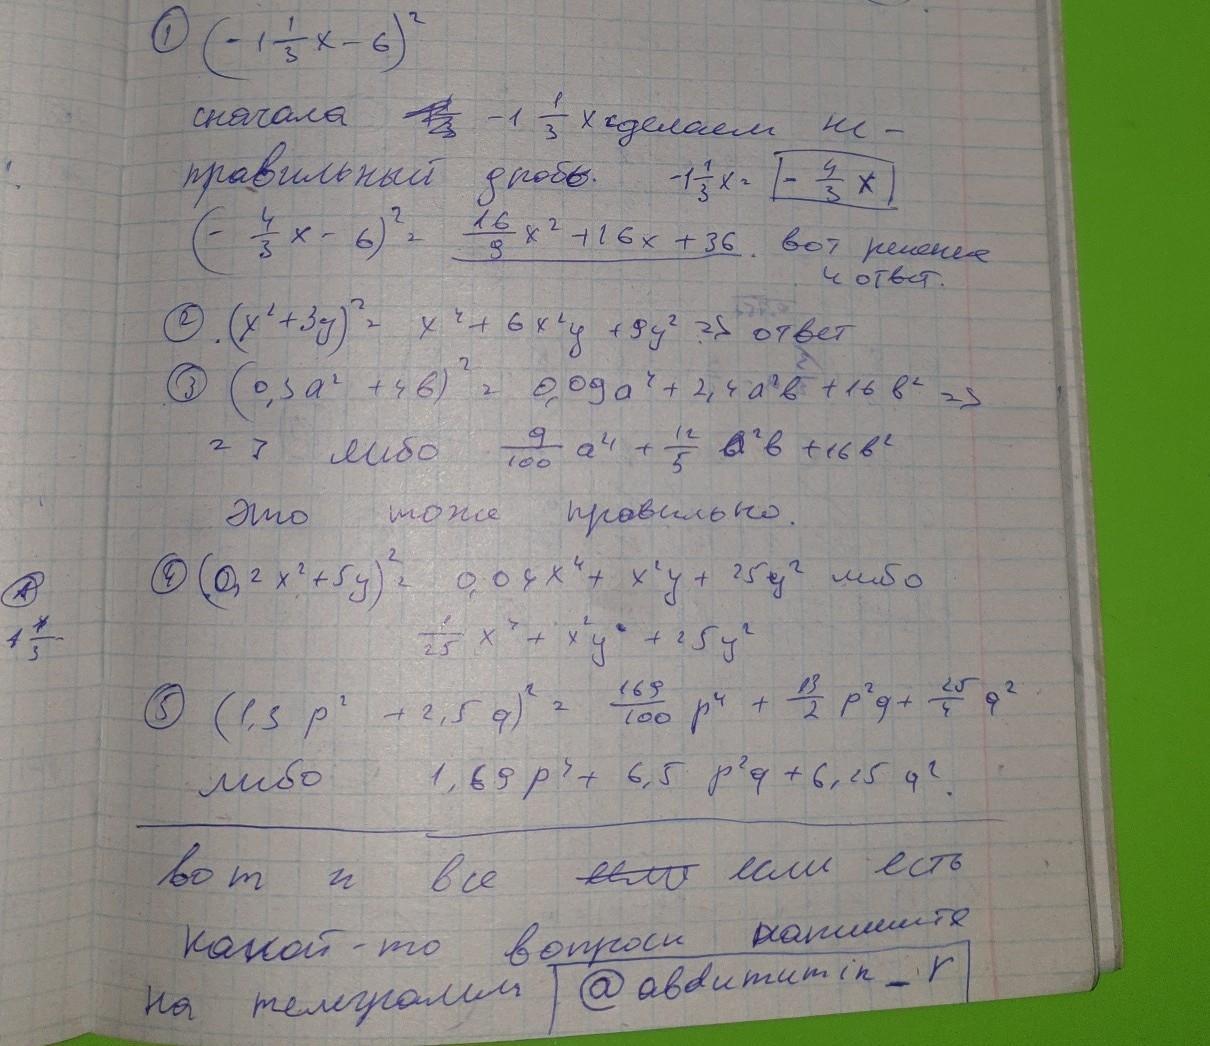 ① (-1 1/3 x - 6)²
сначала -1 1/3 x сделаем не-
правильный дробь. -1 1/3 x = - 4/3 x
(- 4/3 x - 6)² = 16/9 x² + 16x + 36. вот решение
и ответ.
② (x² + 3y)² = x⁴ + 6x²y + 9y² => ответ
③ (0,3a² + 4в)² = 0,09a⁴ + 2,4a²в + 16в² =>
=> либо 9/100 a⁴ + 12/5 a²в + 16в²
Это тоже правильно.
④ (0,2x² + 5y)² = 0,04x⁴ + x²y + 25y² либо
1/25 x⁴ + x²y + 25y²
⑤ (1,3 p² + 2,5q)² = 169/100 p⁴ + 13/2 p²q + 25/4 q²
либо 1,69p⁴ + 6,5 p²q + 6,25q².
вот и все если есть
какой-то вопросы напишите
на телеграмм @abdumumin_r